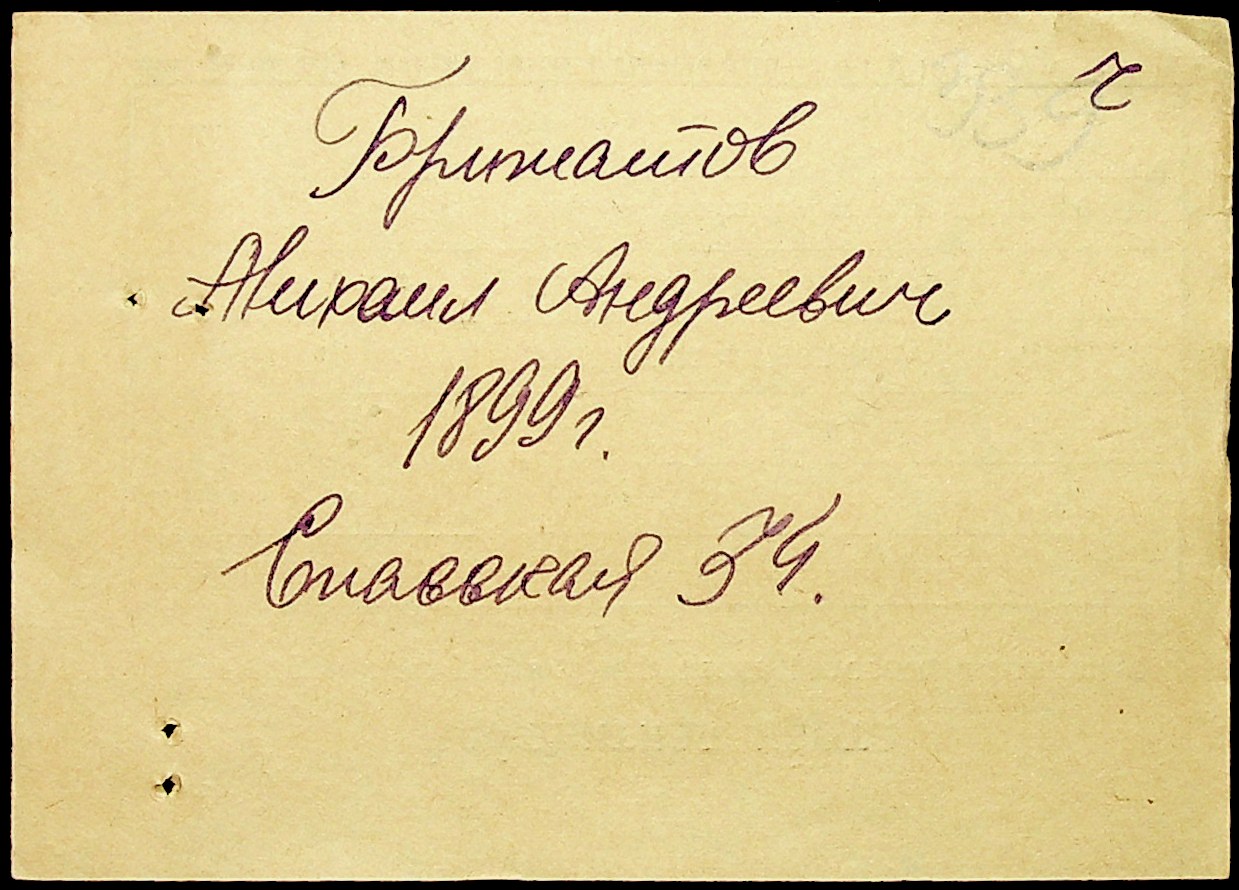 ч
Брижатов
Михаил Андреевич
1899 г.
Спасская 34.